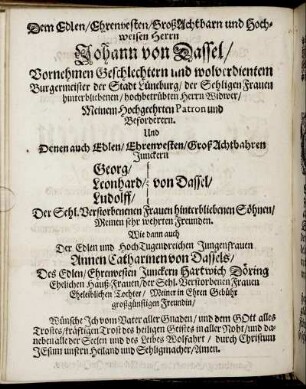 Dem Edlen/Ehrenvesten/GroßAchtbarn und Hoch-
weisen Herrn
Johann von Dassel/
Vornehmen Geschlechtern und wolverdientem
Burgermeister der Stadt Lüneburg/ der Sehligen Frauen
hinterbliebenen/ hochbetrübten Herrn Widwer/
Meinem Hochgeehrten Patron und
Beforderern.
Und
Denen auch Edlen/ Ehrenvesten/ Groß Achtbahren
Junckern
Georg/
Leonhard/ von Dassel/
Ludolff/
Der Sehl. Verstorbenenen Frauen hinterbliebenen Söhnen/
Meinen sehr wehrten Freunden.
Wie dann auch
Der Edlen und HochTugendreichen Jungenfrauen
Annen Catharinen von Dassels/
Des Edlen/ Ehrenvesten Junckern Hartwich Döring
Ehelichen Hauß-Frauen/ der Sehl. Verstorbenen Frauen
Eheleiblichen Tochter/ Meiner in Ehren Gebühr
großgünstigen Freundin/
Wünsche Ich vom Vater aller Gnaden/ und dem GOtt alles
Trostes/ kräftigen Trost des heiligen Geistes in aller Noht/ und da-
neben alle der Seelen und des Leibes Wolfahrt/ durch Christum
JEsum unsern Heiland und Sehligmacher/ Amen.